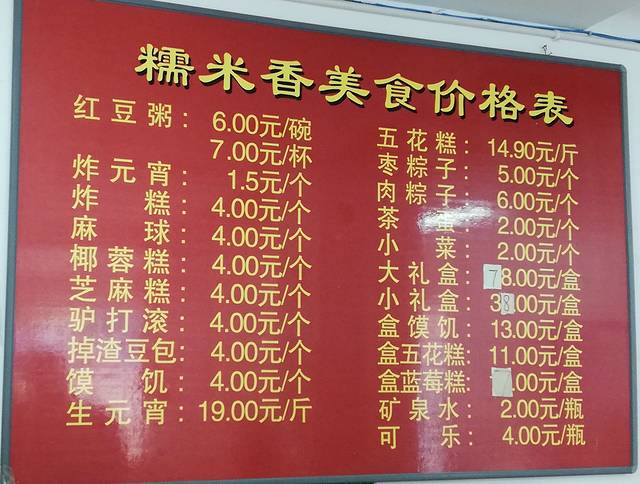 糯米香美食价格表
红豆粥：6.00元/碗
7.00元/杯
炸元宵：1.5元/个
炸糕：4.00元/个
麻球：4.00元/个
椰蓉糕：4.00元/个
芝麻糕：4.00元/个
驴打滚：4.00元/个
掉渣豆包：4.00元/个
馍饥：4.00元/个
生元宵：19.00元/斤
五花糕：14.90元/斤
枣粽子：5.00元/个
肉粽子：6.00元/个
茶蛋：2.00元/个
小菜：2.00元/个
大礼盒：78.00元/盒
小礼盒：38.00元/盒
盒馍饥：13.00元/盒
盒五花糕：11.00元/盒
盒蓝莓糕：.00元/盒
矿泉水：2.00元/瓶
可乐：4.00元/瓶